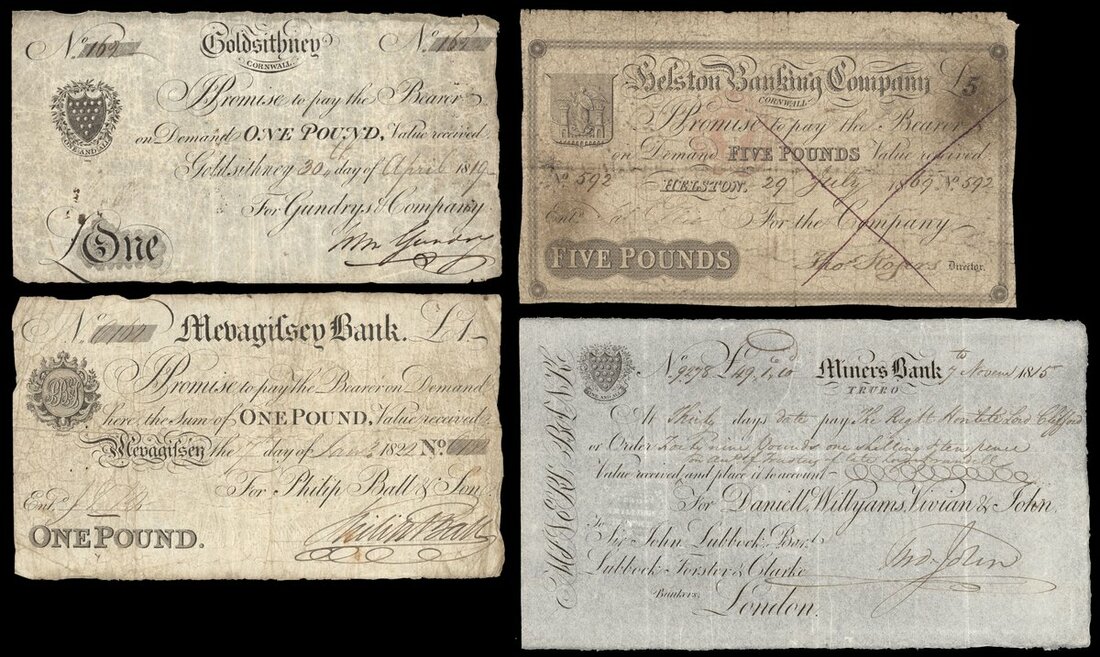 No. 162 No. 162
Goldsithney
CORNWALL
I Promise to pay the Bearer
on Demand ONE POUND, Value received
Goldsithney 30 day of April 1819
ONE AND ALL
For Gundrys & Company
Wm Gundry
£One
Helston Banking Company £5
CORNWALL
I Promise to pay the Bearer
on Demand FIVE POUNDS Value received
No 592 HELSTON, 29 July 1869 No 592
Entd. For the Company
FIVE POUNDS Thos Rogers Director.
No. Mevagiſsey Bank. £1
I Promise to pay the Bearer on Demand
here, the Sum of ONE POUND, Value received
Mevagiſsey the 7 day of 1822 No.
For Philip Ball & Son
Entd.
Philip Ball
ONE POUND.
MINERS BANK
No. 9278 £49, 1, 10 Miners Bank 7th Novemr 1815
TRURO
ONE AND ALL
At Thirty days date pay The Right Honble Lord Clifford
or Order Forty nine Pounds one shilling & ten pence
Value received and place it to account
For Daniell, Willyams, Vivian & John
To
Sir John Lubbock, Bart.
Lubbock, Forster & Clarke Thos. John
Bankers,
London.